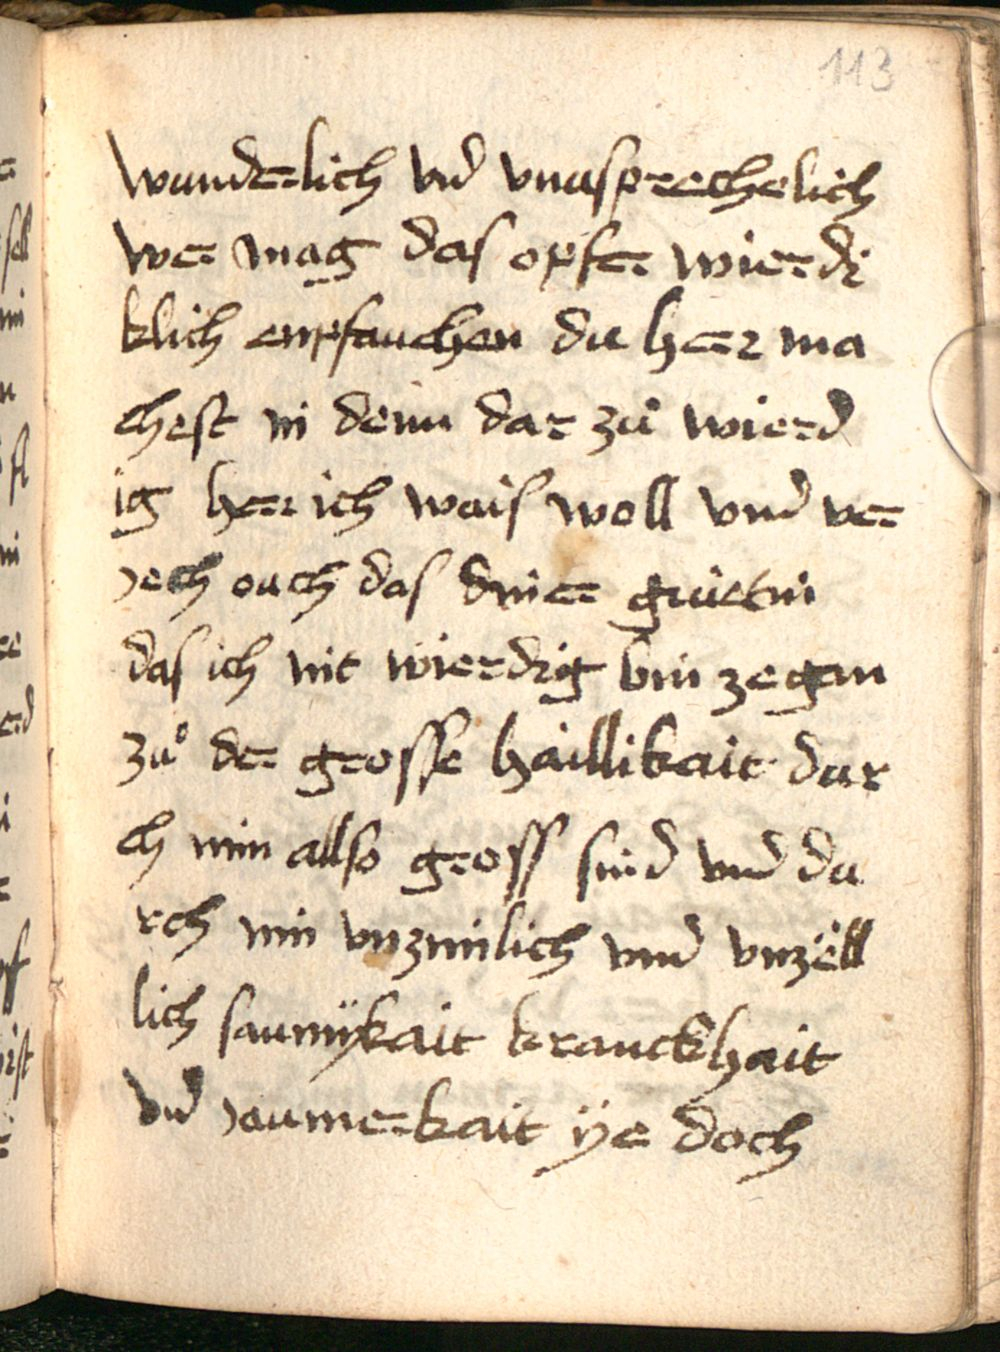 113
wunderlich vnd vnasprechelich
wer mag das opfer wierdi
klich enpfauchen du herr ma
chest in denn dar zuͦ wierd
ig herr ich wais woll vnd ver
jech ouch das diner güettin
das ich nit wierdig bin ze gan
zuͦ der grosse haillikait dur
ch min allso gross sind vnd du
rch min vnzimlich vnd vnzëll
lich saumÿkait kranckhait
vnd jaumerkait ÿe doch